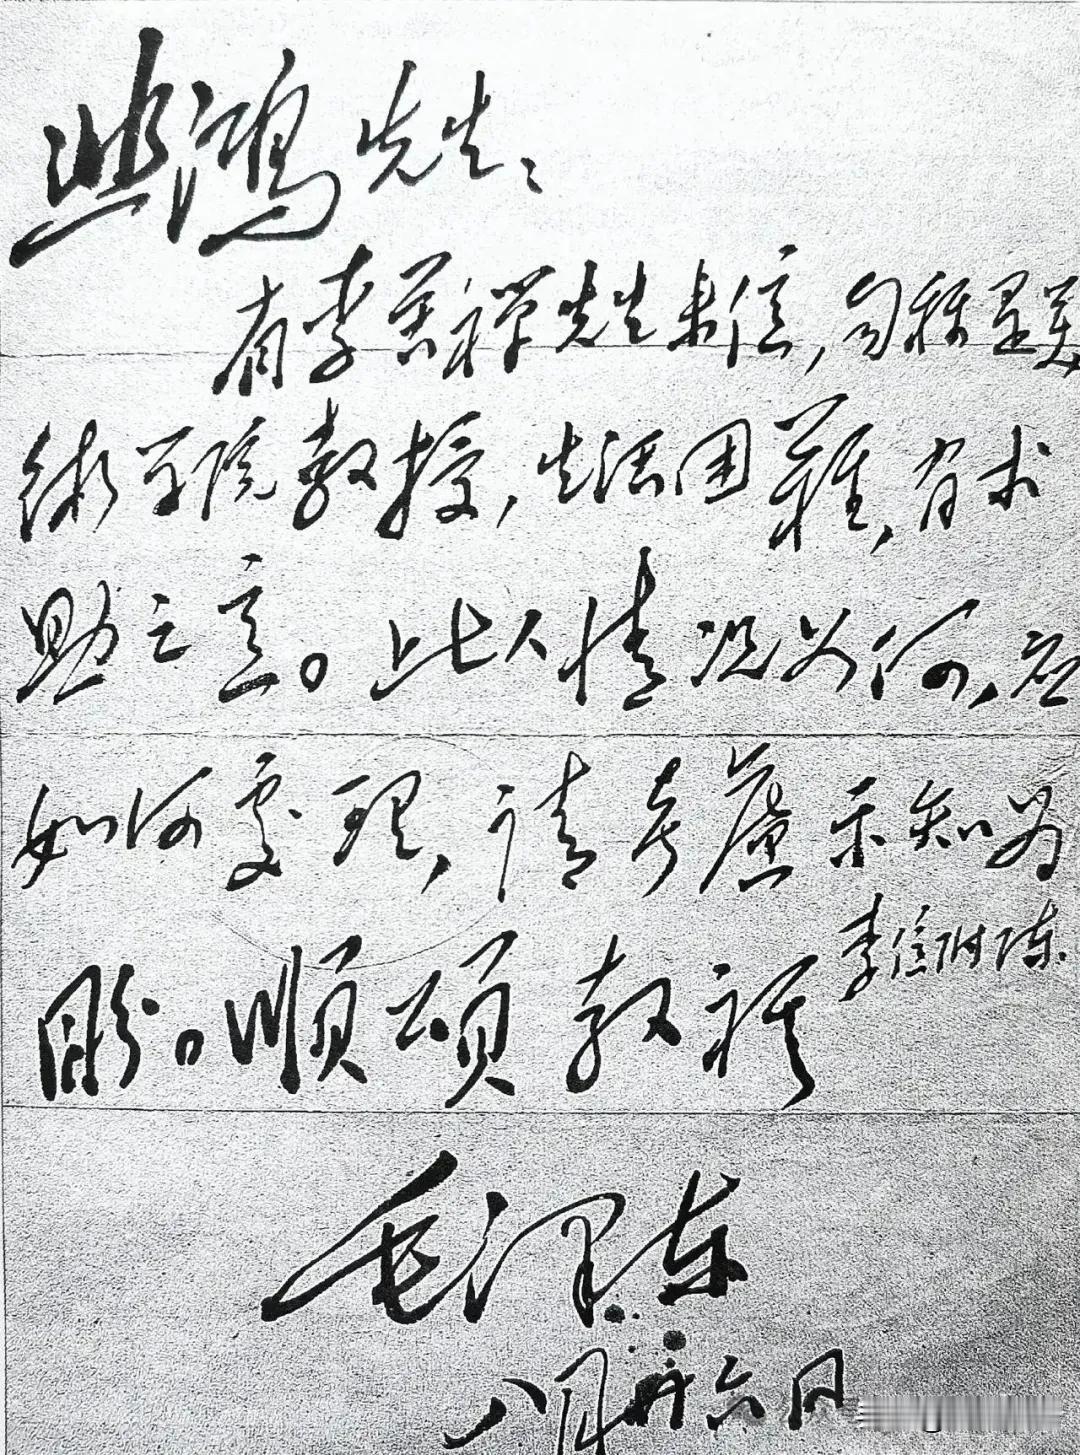 悲鸿先生：
有李苦禅先生来信，自称是美
術学院教授，生活困難，有求
助之意。此人情况如何，应
如何處理，请考慮示知为
盼。順頌教祺
李信附陈
毛泽东
八月廿六日